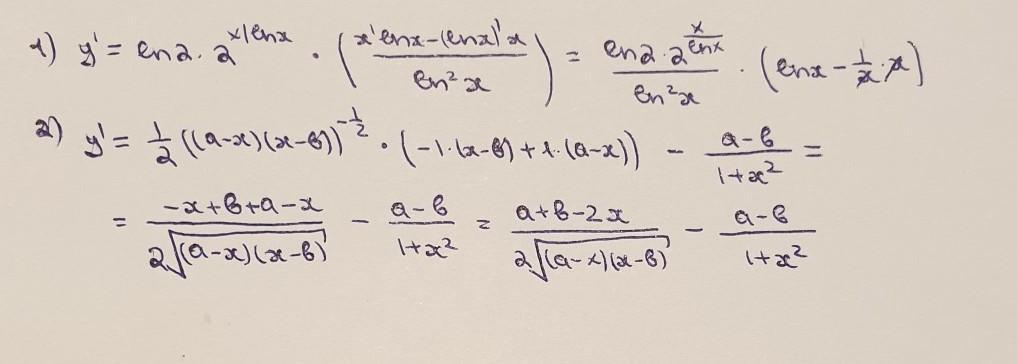 1) y' = ln2 · 2^(x/lnx) · ((x'lnx - (lnx)'x)/(ln²x)) = (ln2 · 2^(x/lnx))/(ln²x) · (lnx - 1/x · x)
2) y' = 1/2 ((a-x)(x-b))^(-1/2) · (-1·(x-b) + 1·(a-x)) - (a-b)/(1+x²) =
= (-x+b+a-x)/(2√((a-x)(x-b))) - (a-b)/(1+x²) = (a+b-2x)/(2√((a-x)(x-b))) - (a-b)/(1+x²)